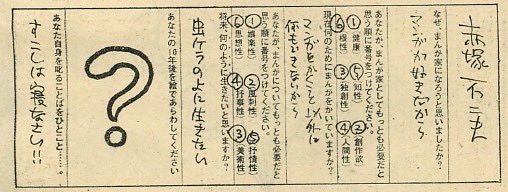 なぜ、まんが家になろうと思いましたか?
赤塚不二夫
マンガが好きだから
あなたが、まんが家としてもっとも必要だと
思う順に番号をつけてください。
①健康 ⑤知性 ②創作欲
⑥根性 ③独創性 ④人間性
現在何のためにまんがをかいていますか?
マンガをかくこと以外に
何もできないから
あなたが、まんがについてもっとも必要だと
思う順に番号をつけてください。
①娯楽性 ②風刺性 ⑤抒情性
⑥思想性 ④抒事性 ③美術性
将来、何のように生きたいと思いますか?
虫ケラのよに生きたい
あなたの10年後を絵であらわしてください
?
あなた自身を叱ることばをひとこと……。
すこしは寝なさい!!